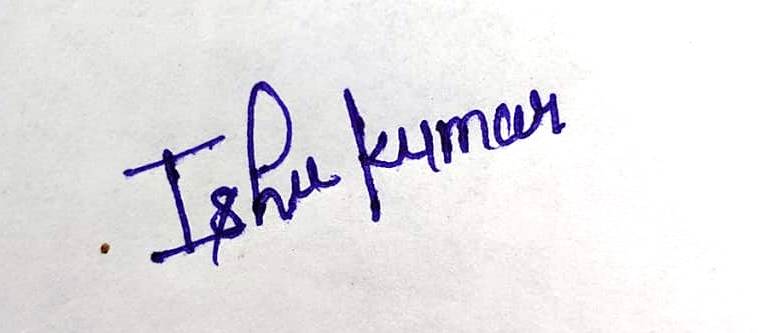 Ishu Kumar